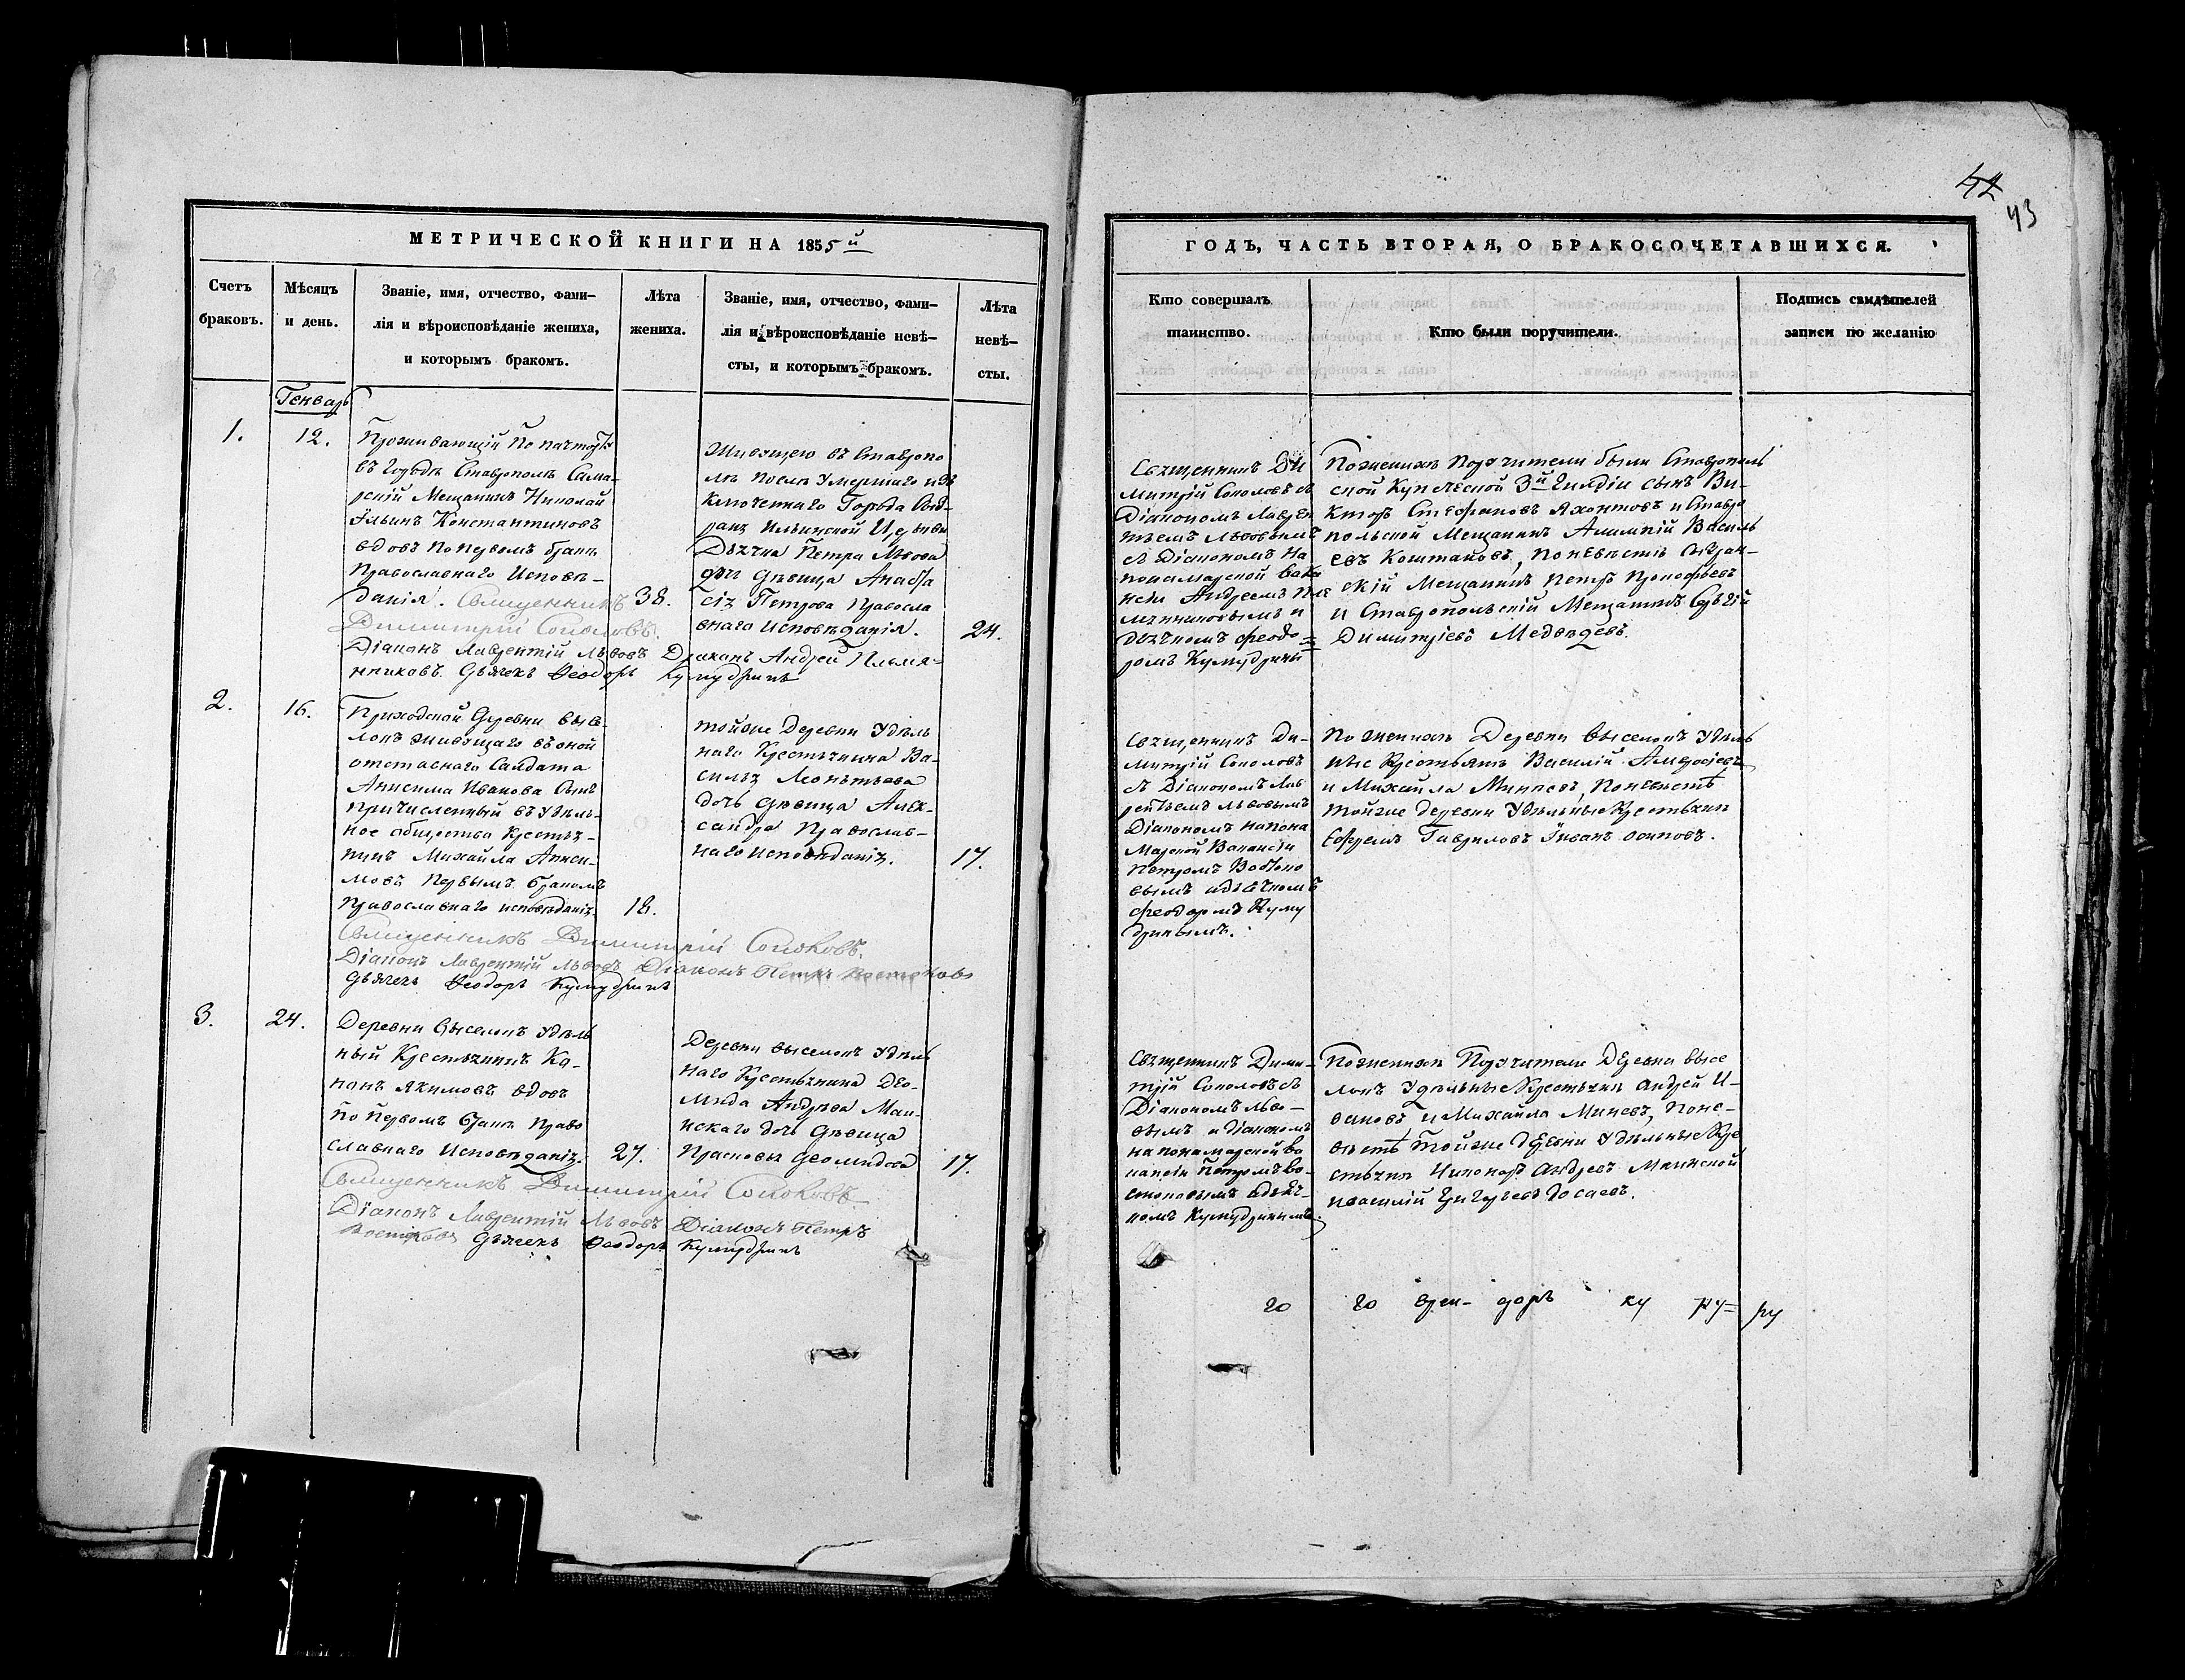 42
43
МЕТРИЧЕСКОЙ КНИГИ НА 1855й
Счетъ браковъ.
Мѣсяцъ и день.
Званіе, имя, отчество, фами-
лія и вѣроисповѣданіе жениха,
и которымъ бракомъ.
Лѣта жениха.
Званіе, имя, отчество, фами-
лія и вѣроисповѣданіе невѣ-
сты, и которымъ бракомъ.
Лѣта невѣ-
сты.
Генварь
1.
12.
Проживающій По пачпорту
въ Городѣ Ставрополѣ Сама-
рскій Мещанинъ Николай
Ильинъ Константиновъ
вдовъ по первомъ бракѣ
Православнаго Исповѣ-
данія. Священникъ
38.
Димитрій Соколовъ.
Діаконъ Лаврентій Львовъ Діаконъ Андрей Племя-
нниковъ. Дьячекъ Ѳеодоръ Кумудринъ
Живущего въ Ставропо
лѣ послѣ Умершаго
Города Сыз-
рана Ильинской Церкви
Дьячка Петра Львова
дочь Дѣвица Анаста
сія Петрова Правосла
внаго Исповѣданія.
24.
2.
16.
Приходской Деревни Высѣ-
локъ живущаго въ оной
отставнаго Салдата
Анисима Иванова Сынъ
причисленный въ Удѣль-
ное общество Крестья-
нинъ Михайла Аниси-
мовъ Первымъ бракомъ
Православнаго исповѣданія.
18.
Священникъ Димитрій Соколовъ.
Діаконъ Лаврентій Львовъ Діаконъ Петръ Востоковъ
Дьячекъ Ѳеодоръ Кумудринъ
тойже Деревни Удѣль
наго Крестьянина Ва-
силья Леонтьева
дочь Дѣвица Алек-
сандра Православ-
наго исповѣданія.
17.
3.
24.
Деревни Выселокъ Удѣль
ный Крестьянинъ Ка-
нонъ Якимовъ вдовъ
по первомъ бракѣ Право
славнаго Исповѣданія.
27.
Священникъ Димитрій Соколовъ
Діаконъ Лаврентій Львовъ Діаконъ Петръ
Востоковъ Дьячекъ Ѳеодоръ Кумудринъ
Деревни выселокъ Удѣль
наго Крестьянина Део-
мида Андрѣева Маи-
нскаго дочь Дѣвица
Прасковья Деомидова
17.
ГОДЪ, ЧАСТЬ ВТОРАЯ, О БРАКОСОЧЕТАВШИХСЯ.
Кто совершалъ таинство.
Кто были поручители.
Подпись свидѣтелей
записи по желанію
Священникъ Ди
митрій Соколовъ съ
Діакономъ Лаврен
тьемъ Львовымъ
съ Діакономъ на
пономарской вака
нсіи Андреемъ Пле
мянниковымъ и
дьячкомъ Феодо=
ромъ Кумудринымъ
По женихѣ Поручители были Ставрополь
ской Купеческой 3й Гилдіи сынъ Ви-
кторъ Стефановъ Яхонтовъ и Ставро
польской Мещанинъ Алимпій Василь
евъ Коштановъ, по невѣстѣ Сызран-
скій Мещанинъ Петръ Прокофьевъ
и Ставропольскій Мещанинъ Сергій
Димитріевъ Медведевъ.
Священникъ Ди-
митрій Соколовъ
съ Діакономъ Лав
рентьемъ Львовымъ
Діакономъ на поно
марской Вакансіи
Петромъ Востоко
вымъ и дьячкомъ
Феодоромъ Куму
дринымъ.
По женихѣ Деревни выселокъ Удѣль
ные Крестьяне Василій Амвросіевъ
и Михайла Минѣевъ, по невѣстѣ
тойже деревни Удѣльные Крестьяне
Ефремъ Гавриловъ Іванъ Осиповъ.
Священникъ Дими-
трій Соколовъ съ
Діакономъ Льво-
вымъ и діакономъ
на пономарской ва
кансіи Петромъ Во-
стоковымъ и дьяч-
комъ Кумудринымъ.
По женихѣ Поручители Деревни высе
локъ Удѣльные Крестьяне Андрей И-
вановъ и Михайла Минеевъ, по не-
вѣстѣ тойже деревни Удѣльные Кре
стьяне Никаноръ Андреевъ Маинской
и Василій Григорьевъ Досаевъ.
го го
доръ ку ру